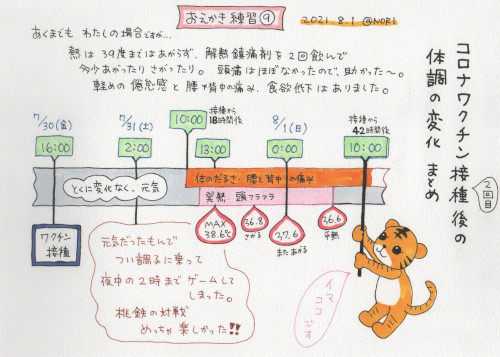 おえかき練習⑨
2021.8.1 @NORI
あくまでも わたしの場合ですが…
熱は39度まではあがらず、解熱鎮痛剤を2回飲んで
多少あがったり さがったり。頭痛はほぼなかったので、助かった〜。
軽めの倦怠感と 腰や背中の痛み、食欲低下はありました。
コロナワクチン接種後の
2回目
体調の変化 まとめ
7/30(金)
16:00
7/31(土)
2:00
10:00
接種から
18時間後
13:00
8/1(日)
0:00
接種から
42時間後
10:00
とくに変化なく、元気
体のだるさ・腰と背中の痛み
発熱・頭フラフラ
MAX
38.6℃
36.8
さがる
37.6
またあがる
36.6
平熱
ワクチン
接種
元気だったもんで
つい調子に乗って
夜中の2時までゲームして
しまった。
桃鉄の対戦
めっちゃ楽しかった!!
イマ
ココ
です